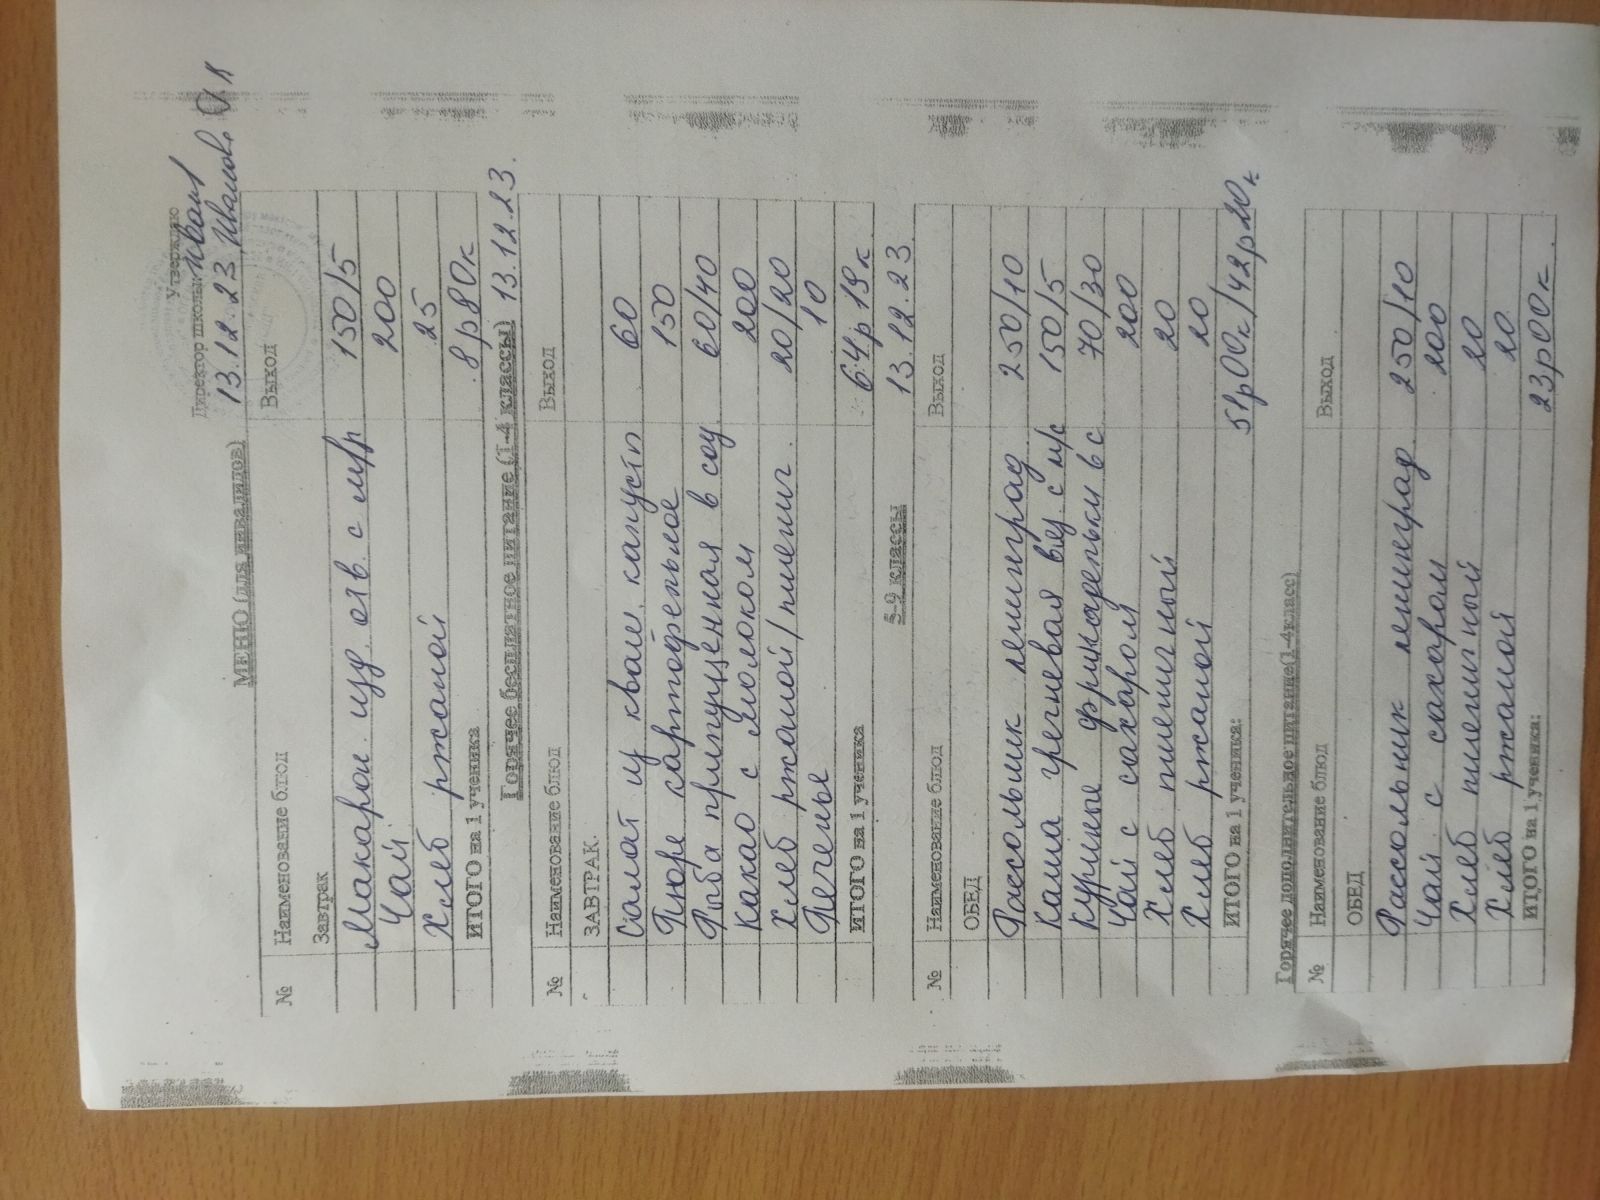 Утверждаю
Директор школы
13.12.23
МЕНЮ (для инвалидов)
№ Наименование блюд Выход
Завтрак
Макарон. изд. отв. с м/р 150/5
Чай 200
Хлеб ржаной 25
ИТОГО на 1 ученика 8р80к
Горячее бесплатное питание (1-4 классы) 13.12.23.
№ Наименование блюд Выход
ЗАВТРАК.
Салат из кваш. капусты 60
Пюре картофельное 150
Рыба припущенная в соу. 60/40
Какао с молоком 200
Хлеб ржаной/пшенич. 20/20
Печенье 10
ИТОГО на 1 ученика 64р19к
5-9 классы 13.12.23
№ Наименование блюд Выход
ОБЕД
Рассольник ленинград. 250/10
Каша гречневая вяз. с м/с 150/5
Куриные фрикадельки в с 70/30
Чай с сахаром 200
Хлеб пшеничный 20
Хлеб ржаной 20
ИТОГО на 1 ученика: 51р00к/42р20к
Горячее дополнительное питание(1-4класс)
№ Наименование блюд Выход
ОБЕД
Рассольник ленинград 250/10
Чай с сахаром 200
Хлеб пшеничный 20
Хлеб ржаной 20
ИТОГО на 1 ученика: 23р00к.